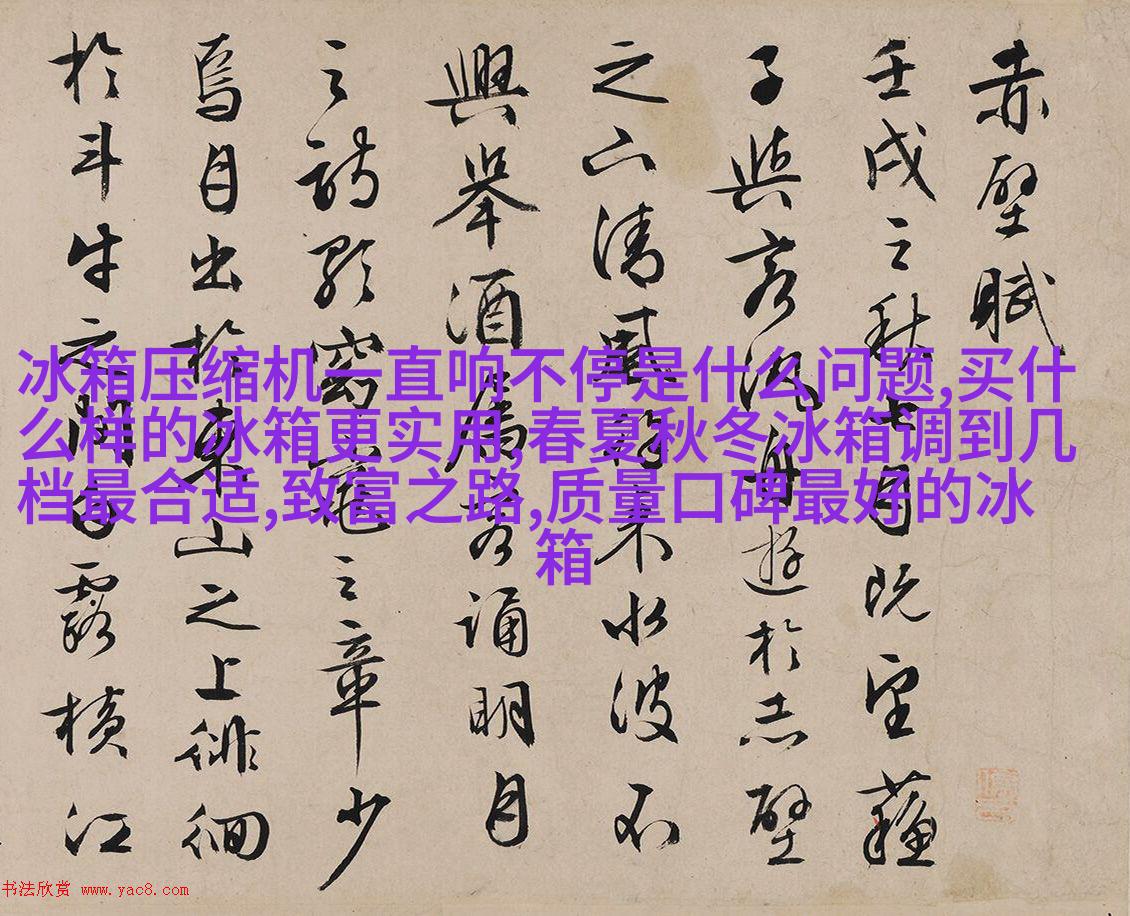 赤壁賦
壬戌之秋七月既望蘇
子與客泛舟遊於赤壁
之下清風徐來水波不
興舉酒屬客誦明月
之詩歌窈窕之章少
焉月出於東山之上徘徊
於斗牛之間白露橫江
冰箱压缩机一直响不停是什么问题,买什
么样的冰箱更实用,春夏秋冬冰箱调到几
档最合适,致富之路,质量口碑最好的冰
箱
书法欣赏 www.yac8.com